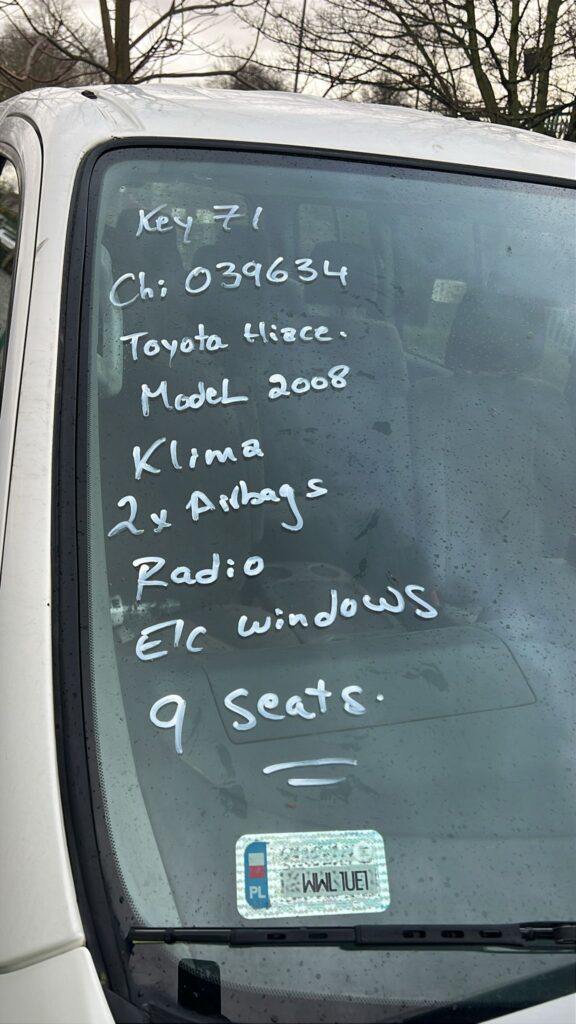 Key 71
Chi 039634
Toyota Hiace.
Model 2008
Klima
2x Airbags
Radio
Elc windows
9 Seats.
PL